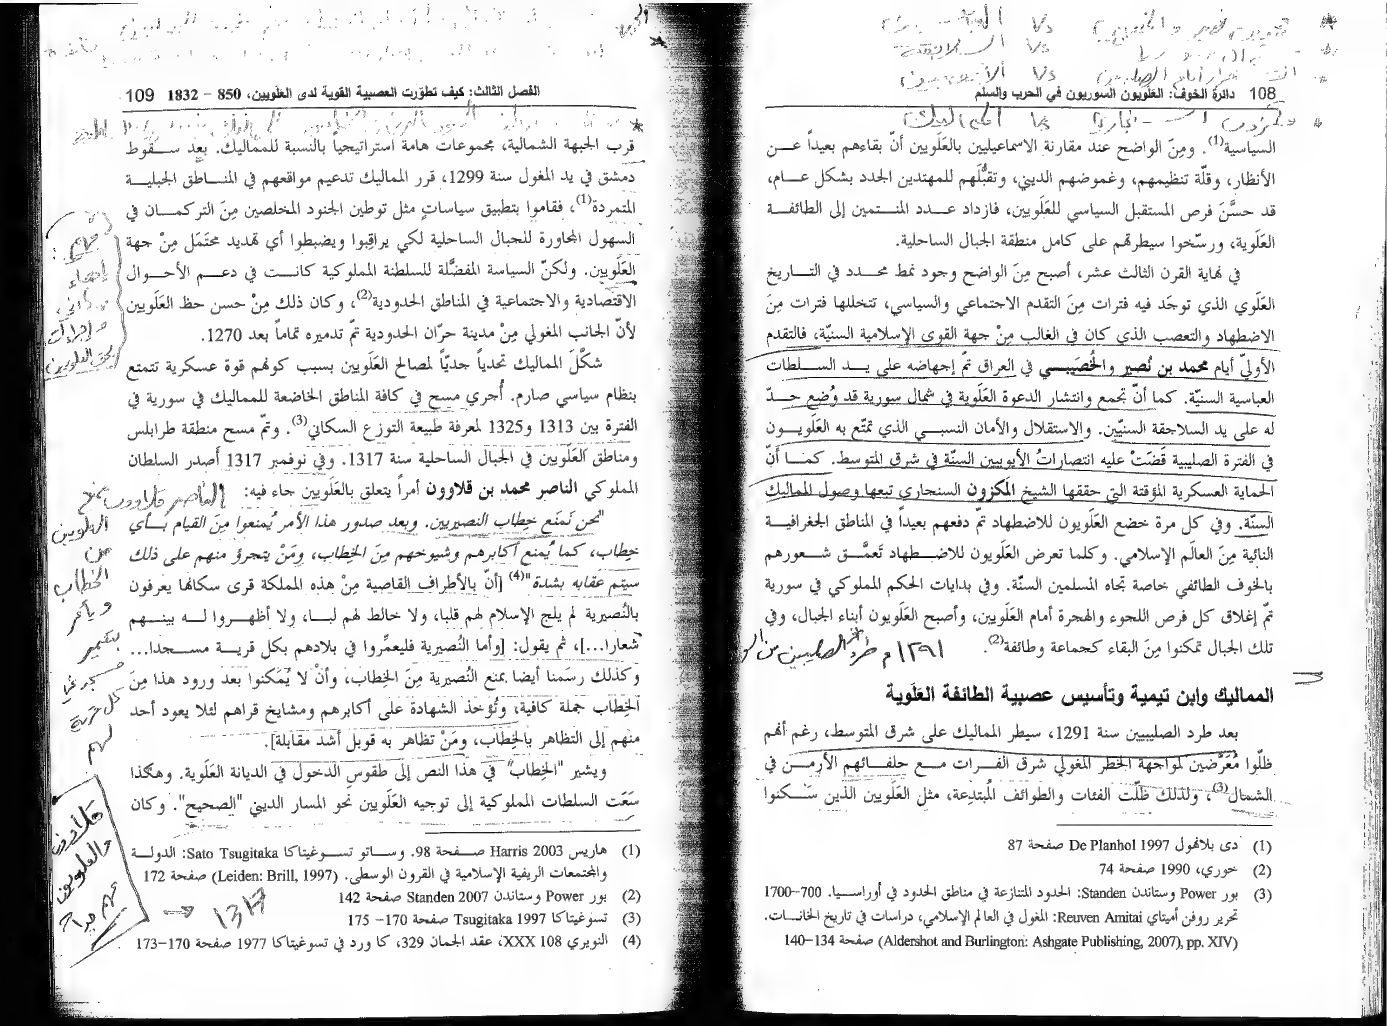 108 دائرة الخوف: العَلَويون السوريون في الحرب والسلم
السياسية(1). ومِنَ الواضح عند مقارنة الاسماعيليين بالعَلَويين أنّ بقاءهم بعيداً عـن
الأنظار، وقلّة تنظيمهم، وغموضهم الديني، وتقبُّلهم للمهتدين الجدد بشكل عـام،
قد حسَّنَ فرص المستقبل السياسي للعَلَويين، فازداد عـدد المنـتمين إلى الطائفـة
العَلَوية، ورسّخوا سيطرتهم على كامل منطقة الجبال الساحلية.
في نهاية القرن الثالث عشر، أصبح مِنَ الواضح وجود نمط محـدد في التـاريخ
العَلَوي الذي توجَد فيه فترات مِنَ التقدم الاجتماعي والسياسي، تتخللها فترات مِنَ
الاضطهاد والتعصب الذي كان في الغالب مِنْ جهة القوى الإسلامية السنيّة، فالتقدم
الأوليّ أيام محمد بن نُصير والخُصَيبي في العراق تمّ إجهاضه على يـد السـلطات
العباسية السنيّة. كما أنّ تجمع وانتشار الدعوة العَلَوية في شمال سورية قد وُضِع حـدّ
له على يد السلاجقة السنيّين. والاستقلال والأمان النسبـي الذي تمتّع به العَلَويـون
في الفترة الصليبية قَضَتْ عليه انتصاراتُ الأيوبيين السنّة في شرق المتوسط. كمـا أنّ
الحماية العسكرية المؤقتة التي حققها الشيخ المَكزون السنجاري تبعها وصول المماليك
السنّة. وفي كل مرة خضع العَلَويون للاضطهاد تمّ دفعهم بعيداً في المناطق الجغرافيـة
النائية مِنَ العالَم الإسلامي. وكلما تعرض العَلَويون للاضـطهاد تعمَّـق شـعورهم
بالخوف الطائفي خاصة تجاه المسلمين السنّة. وفي بدايات الحكم المملوكي في سورية
تمّ إغلاق كل فرص اللجوء والهجرة أمام العَلَويين، وأصبح العَلَويون أبناء الجبال، وفي
تلك الجبال تمكنوا مِنَ البقاء كجماعة وطائفة(2).
المماليك وابن تيمية وتأسيس عصبية الطائفة العَلَوية
بعد طرد الصليبيين سنة 1291، سيطر المماليك على شرق المتوسط، رغم أنهم
ظلّوا مُعَرَّضين لمواجهة الخطر المغولي شرق الفرات مـع حلفائـهم الأرمـن في
الشمال(3)، ولذلك ظلّت الفئات والطوائف المُبتدِعة، مثل العَلَويين الذين سَـكنوا
(1) دى بلانهول De Planhol 1997 صفحة 87
(2) خوري، 1990 صفحة 74
(3) بور Power وستاندن Standen: الحدود المتنازعة في مناطق الحدود في أوراسيـا. 700–1700
تحرير روفن أميتاي Reuven Amitai: المغول في العالم الإسلامي، دراسات في تاريخ الخانـات.
(Aldershot and Burlington: Ashgate Publishing, 2007), pp. XIV) صفحة 134–140
1291م طرد الصليبيين من
الفصل الثالث: كيف تطوّرت العصبية القوية لدى العلَويين، 850 – 1832 109
قرب الجبهة الشمالية، مجموعات هامة استراتيجياً بالنسبة للمماليك. بعد سـقوط
دمشق في يد المغول سنة 1299، قرر المماليك تدعيم مواقعهم في المنـاطق الجبليـة
المتمردة(1)، فقاموا بتطبيق سياساتٍ مثل توطين الجنود المخلصين مِنَ التركمـان في
السهول المجاورة للجبال الساحلية لكي يراقِبوا ويضبطوا أي تهديد محتَمَل مِنْ جهة
العَلَويين. ولكنّ السياسة المفضَّلة للسلطنة المملوكية كانـت في دعـم الأحـوال
الاقتصادية والاجتماعية في المناطق الحدودية(2)، وكان ذلك مِنْ حسن حظ العَلَويين
لأنّ الجانب المغولي مِنْ مدينة حرّان الحدودية تمّ تدميره تماماً بعد 1270.
شكّلَ المماليك تحدياً جدّياً لمصالح العَلَويين بسبب كونهم قوة عسكرية تتمتع
بنظام سياسي صارم. أُجري مسح في كافة المناطق الخاضعة للمماليك في سورية في
الفترة بين 1313 و1325 لمعرفة طبيعة التوزع السكاني(3). وتمّ مسح منطقة طرابلس
ومناطق العَلَويين في الجبال الساحلية سنة 1317. وفي نوفمبر 1317 أصدر السلطان
المملوكي الناصر محمد بن قلاوون أمراً يتعلق بالعَلَويين جاء فيه:
"نحن نَمنَع خِطاب النصيريين. وبعد صدور هذا الأمر يُمنَعوا مِنَ القيام بـأي
خِطاب، كما يُمنع أكابرهم وشيوخهم مِنَ الخِطاب، ومَنْ يتجرؤ منهم على ذلك
سيتم عقابه بشدة"(4) [أنّ بالأطراف القاصية مِنْ هذه المملكة قرى سكانُها يعرفون
بالنُصيرية لم يلج الإسلام لهم قلبا، ولا خالط لهم لبـا، ولا أظهـروا لـه بينـهم
شعارا...]، ثم يقول: [وأما النُصيرية فليعمِّروا في بلادهم بكل قريـة مسـجدا...
وكذلك رسَمنا أيضا بمنع النُصيرية مِنَ الخِطاب، وأنْ لا يُمَكنوا بعد ورود هذا مِنَ
الخِطاب جملة كافية، وتُؤخذ الشهادة على أكابرهم ومشايخ قراهم لئلا يعود أحد
منهم إلى التظاهر بالخِطاب، ومَنْ تظاهر به قوبل أشد مقابلة].
ويشير "الخِطاب" في هذا النص إلى طقوس الدخول في الديانة العَلَوية. وهكذا
سَعَت السلطات المملوكية إلى توجيه العَلَويين نحو المسار الديني "الصحيح". وكان
(1) هاريس Harris 2003 صـفحة 98. وسـاتو تسـوغيتاكا Sato Tsugitaka: الدولـة
والمجتمعات الريفية الإسلامية في القرون الوسطى. (Leiden: Brill, 1997) صفحة 172
(2) بور Power وستاندن Standen 2007 صفحة 142
(3) تسوغيتاكا Tsugitaka 1997 صفحة 170– 175
(4) النويري XXX 108، عقد الجمان 329، كا ورد في تسوغيتاكا 1977 صفحة 170–173
الناصر قلاوون يمنع
العلويين
من
الخطاب
ويأمر
بتعمير
مسجد في
كل قرية
لهم
قلاوون
والعلويون
مهم جداً
1317